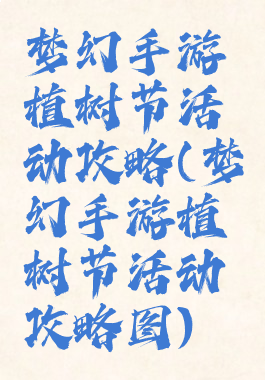 梦幻手游
植树节活
动攻略(梦
幻手游植
树节活动
攻略图)